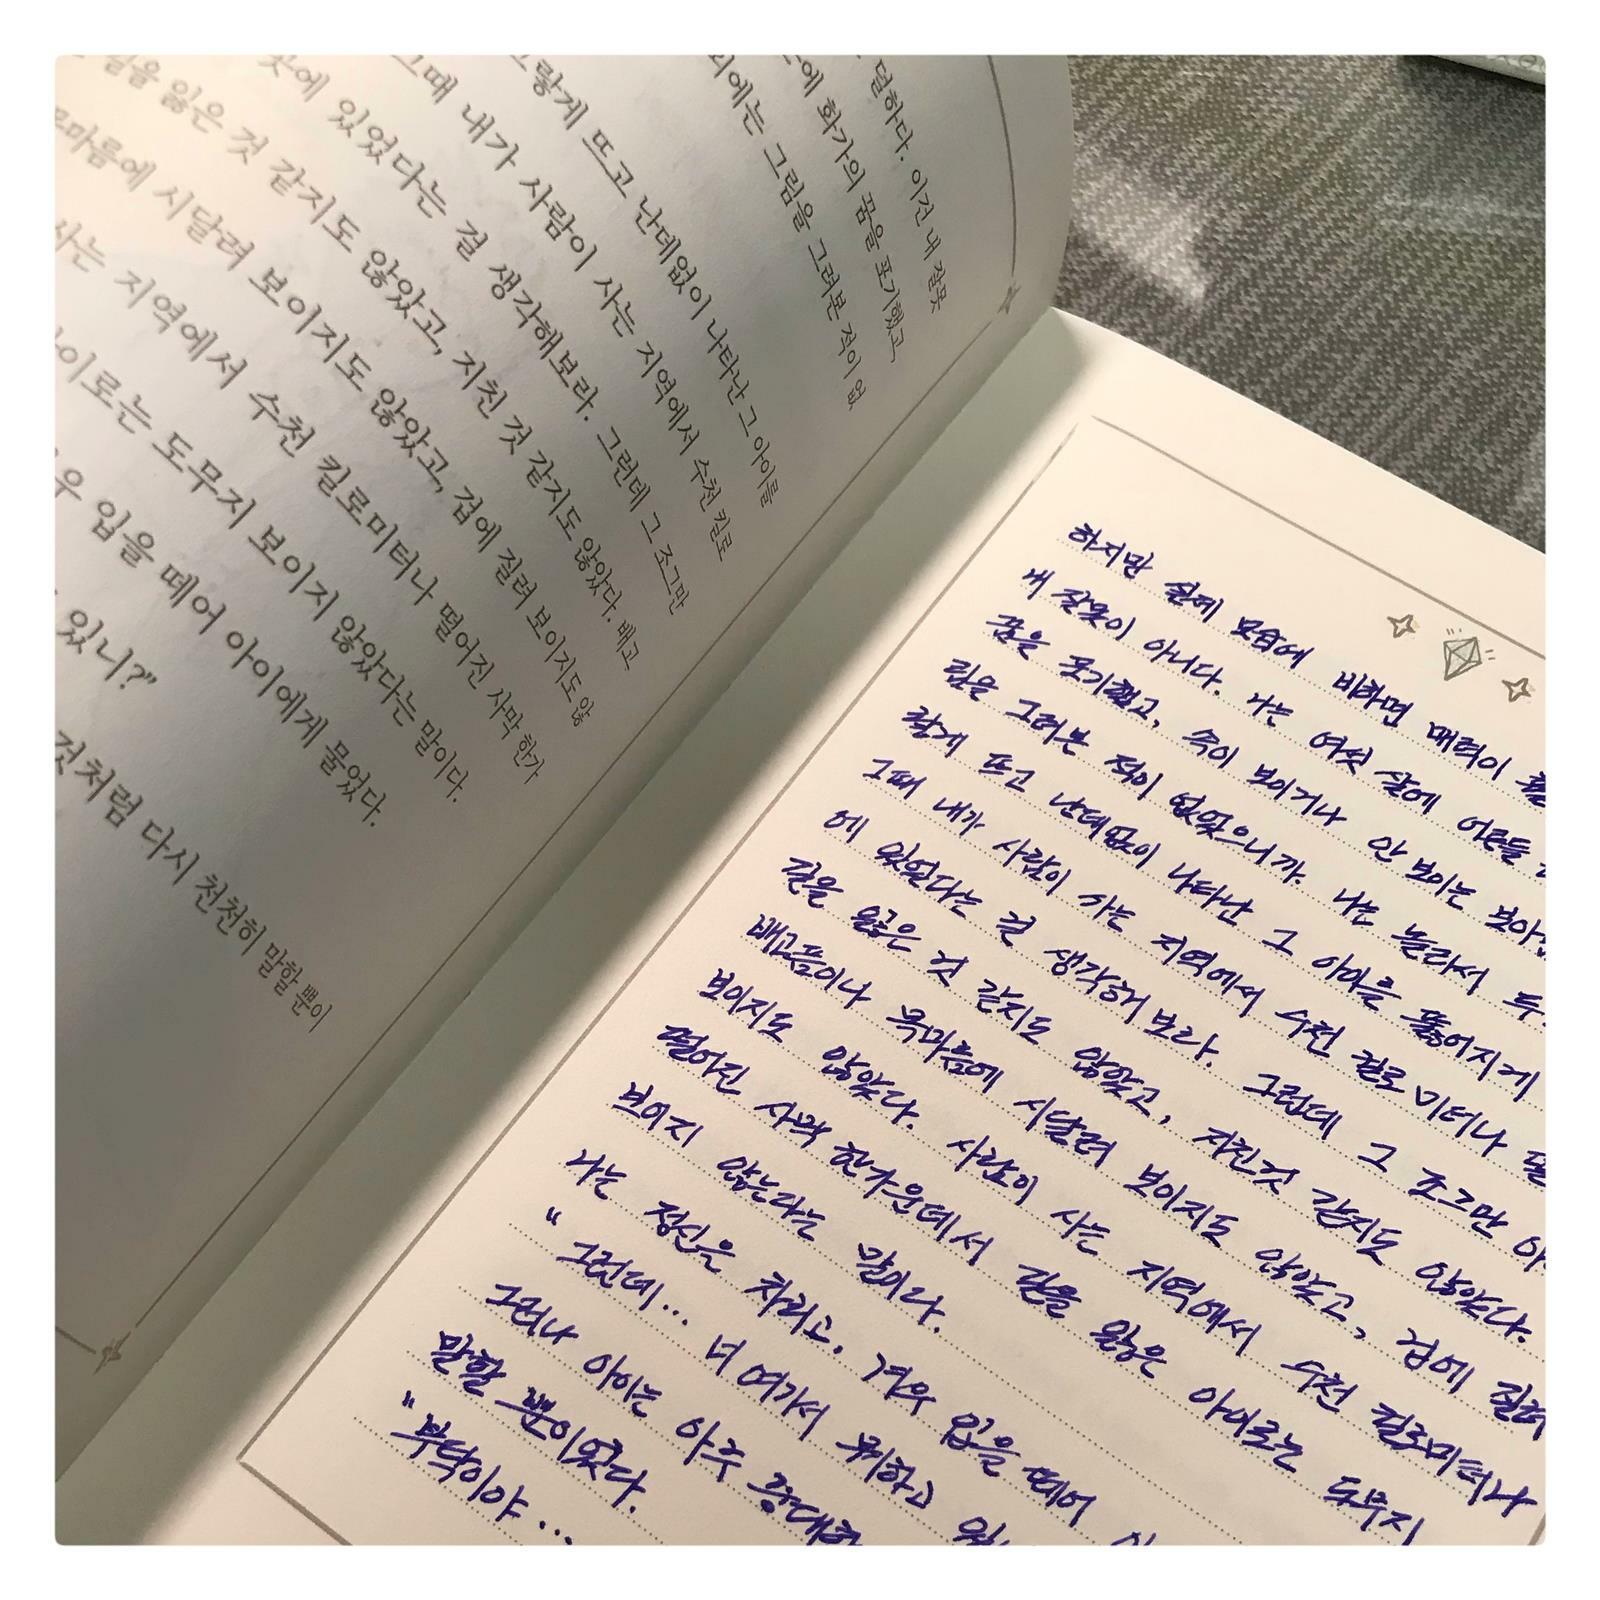 덜하다. 이건 내 잘못
에 화가의 꿈을 포기했고,
외에는 그림을 그려본 적이 없
그랗게 뜨고 난데없이 나타난 그 아이를
그때 내가 사람이 사는 지역에서 수천 킬로
곳에 있었다는 걸 생각해보라. 그런데 그 조그만
길을 잃은 것 같지도 않았고, 지친 것 같지도 않았다. 배고
목마름에 시달려 보이지도 않았고, 겁에 질려 보이지도 않
사는 지역에서 수천 킬로미터나 떨어진 사막 한가
아이로는 도무지 보이지 않았다는 말이다.
우 입을 떼어 아이에게 물었다.
있니?"
것처럼 다시 천천히 말할 뿐이
하지만 실제 모습에 비하면 매력이
내 잘못이 아니다. 나는 여섯 살에 어른들
꿈을 포기했고, 속이 보이거나 안 보이는 보아
림을 그려본 적이 없었으니까. 나는 놀라서 두
랗게 뜨고 난데없이 나타난 그 아이를 뚫어지게
그때 내가 사람이 사는 지역에서 수천 킬로미터나
에 있었다는 걸 생각해보라. 그런데 그 조그만 아
길을 잃은 것 같지도 않았고, 지친것 같지도 않았다.
배고픔이나 목마름에 시달려 보이지도 않았고, 겁에 질려
보이지도 않았다. 사람이 사는 지역에서 수천 킬로미터나
떨어진 사막 한가운데서 길을 잃은 아이로는 도무지
보이지 않는다는 말이다.
나는 정신을 차리고, 겨우 입을 떼어
" 그런데... 너 여기서 뭐하고
그러나 아이는 아주 중대한
말할 뿐이었다.
"부탁이야...